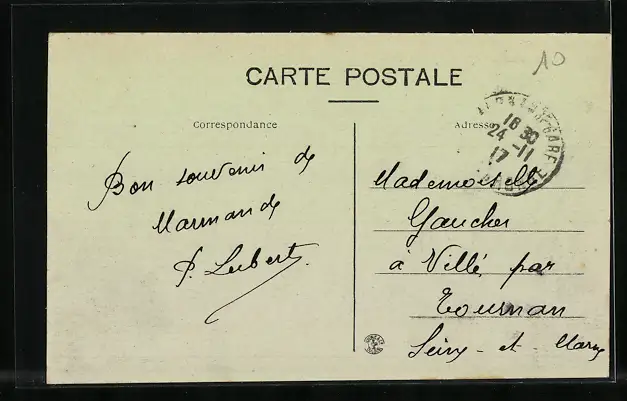 10
CARTE POSTALE
Correspondance
Adresse
16 30
24 -11
17
GARE
Bon souvenir de
Marmande
P. Lubert
Mademoiselle
Gaucher
à Villé, par
Tournan
Seine-et-Marne